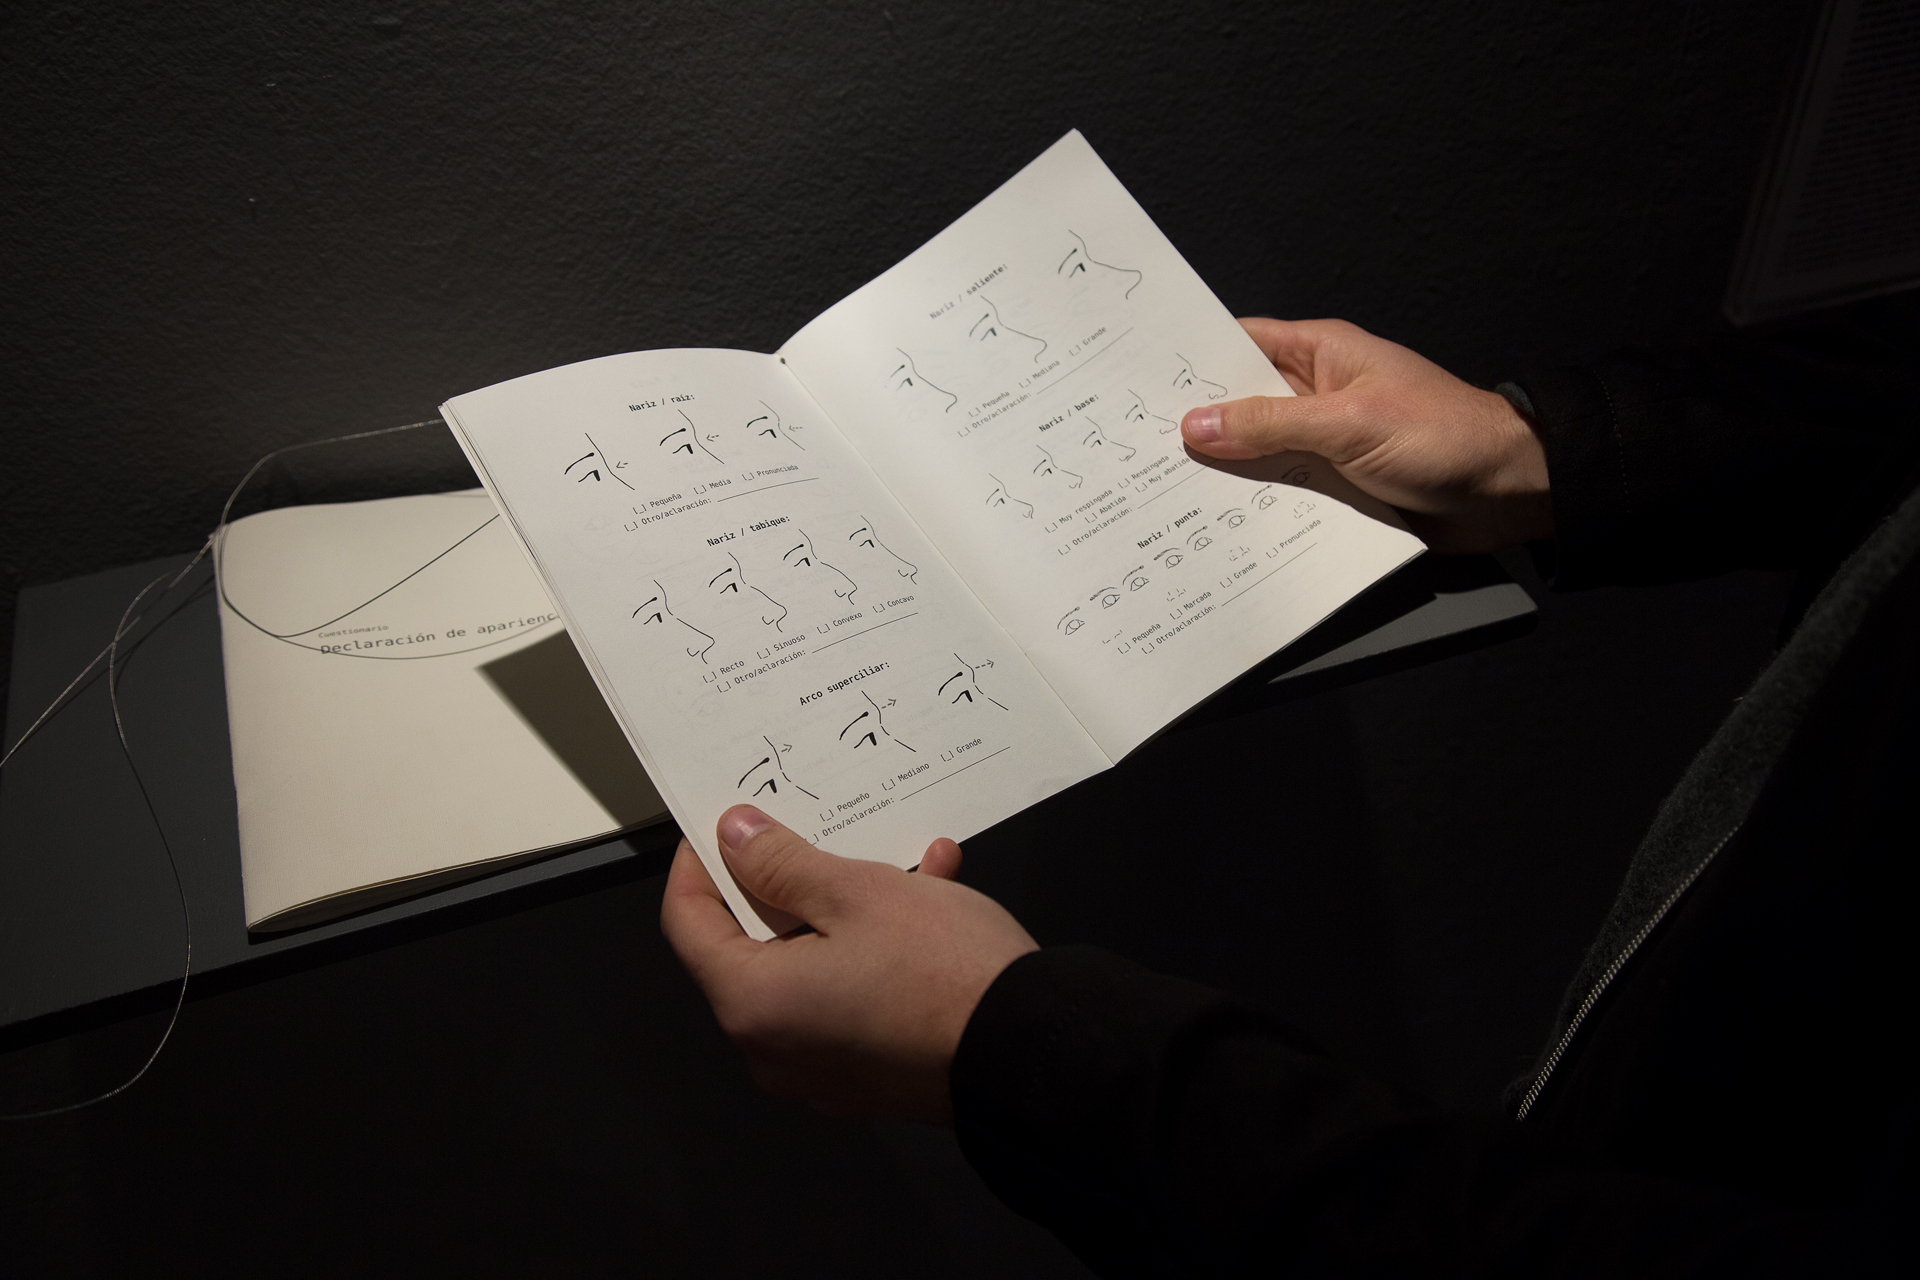 Cuestionario
Declaración de aparienc
Nariz / raíz:
[_] Pequeña [_] Media [_] Pronunciada
[_] Otro/aclaración:
Nariz / tabique:
[_] Recto [_] Sinuoso [_] Convexo [_] Concavo
[_] Otro/aclaración:
Arco superciliar:
[_] Pequeño [_] Mediano [_] Grande
[_] Otro/aclaración:
Nariz / saliente:
[_] Pequeña [_] Mediana [_] Grande
[_] Otro/aclaración:
Nariz / base:
[_] Muy respingada [_] Respingada
[_] Abatida [_] Muy abatida
[_] Otro/aclaración:
Nariz / punta:
[_] Pequeña [_] Marcada [_] Grande [_] Pronunciada
[_] Otro/aclaración: